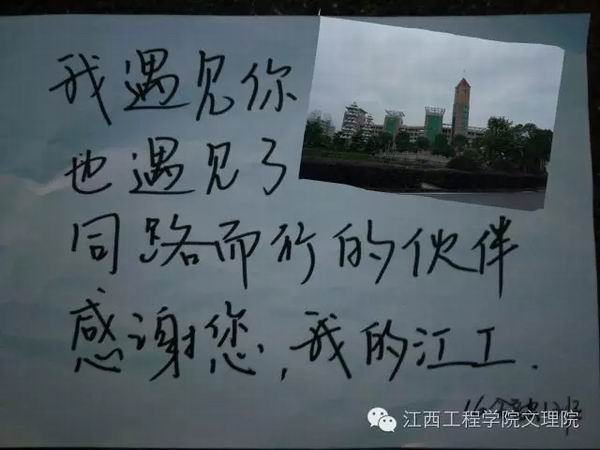 我遇见你
也遇见了
同路而行的伙伴
感谢您,我的江工.
江西工程学院文理院